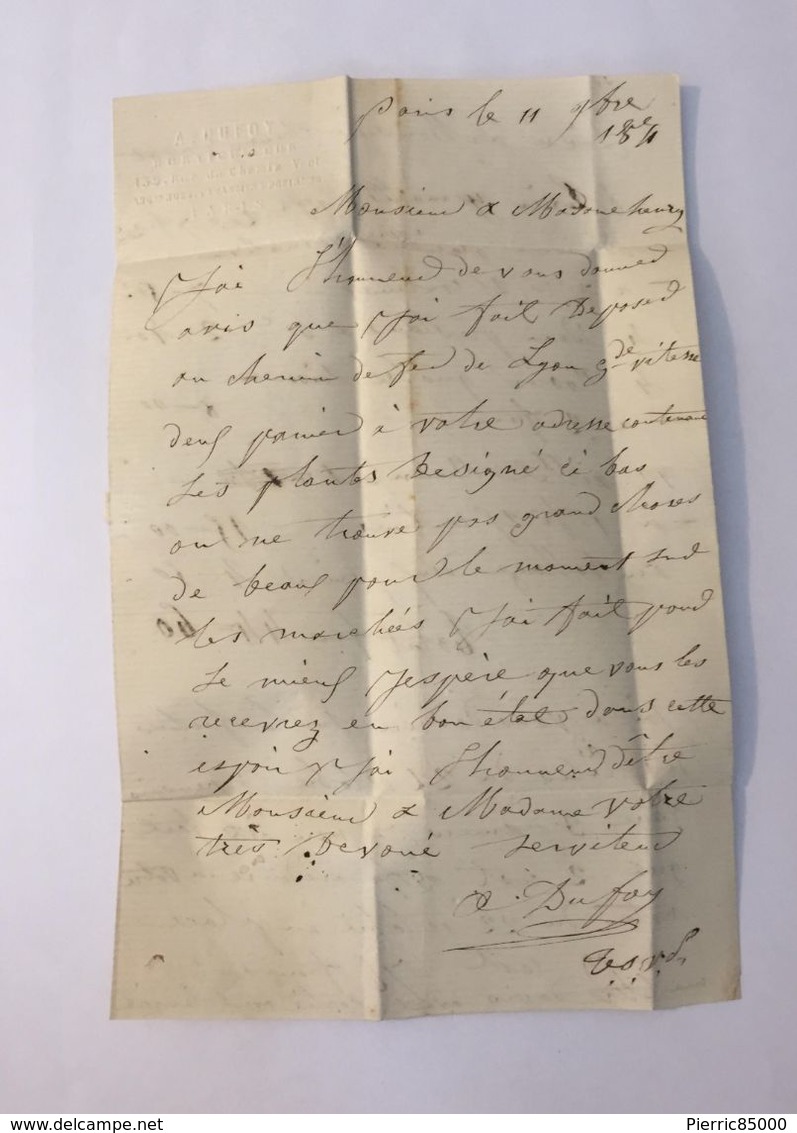 A. DUFOY
Paris le 11 9bre
Monsieur & Madame henry
J'ai l'honneur de vous donner
avis que J'ai fait Déposer
au chemin de fer de Lyon gde vitesse
deux panier à votre adresse contenant
Les plantes Designé ci bas
on ne trouve pas grand choses
de beaux pour le moment sur
les marchées J'ai fait pour
Le mieux J'espère que vous les
recevrez en bon état dans cette
espoir J'ai l'honneur d'être
Monsieur & Madame votre
très Devoué serviteur
A. Dufoy
Delcampe.net
Pierric85000